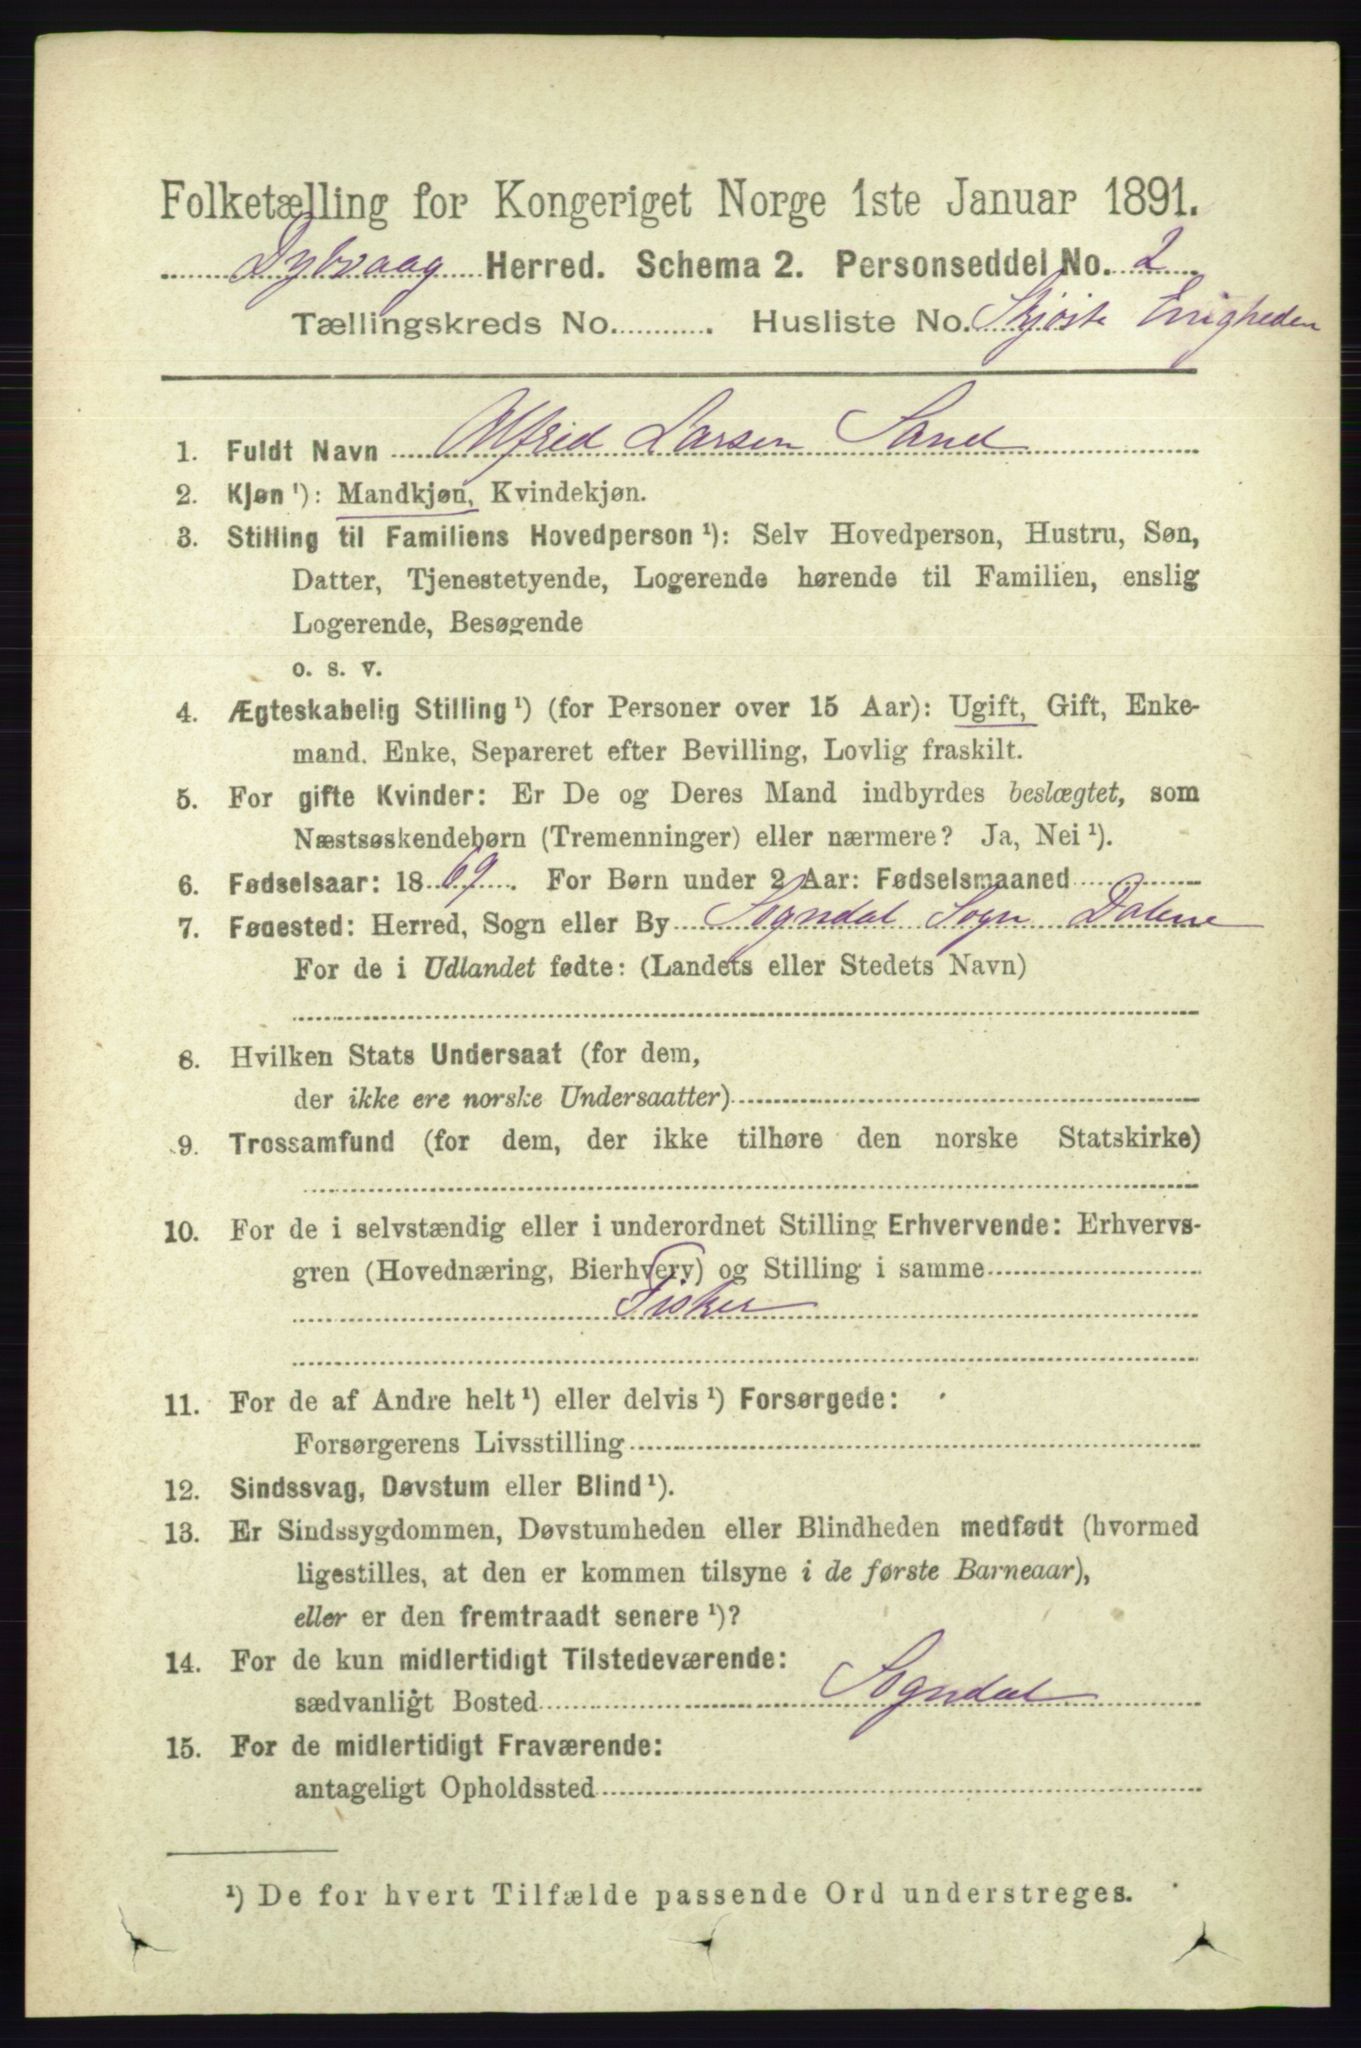 Folketælling for Kongeriget Norge 1ste Januar 1891.
Dybvaag Herred. Schema 2. Personseddel No. 2
Tællingskreds No. Husliste No. Skjøite Enigheden
1. Fuldt Navn Alfred Larsen Sand
2. Kjøn ¹): Mandkjøn, Kvindekjøn.
3. Stilling til Familiens Hovedperson ¹): Selv Hovedperson, Hustru, Søn,
Datter, Tjenestetyende, Logerende hørende til Familien, enslig
Logerende, Besøgende
o. s. v.
4. Ægteskabelig Stilling ¹) (for Personer over 15 Aar): Ugift, Gift, Enke-
mand, Enke, Separeret efter Bevilling, Lovlig fraskilt.
5. For gifte Kvinder: Er De og Deres Mand indbyrdes beslægtet, som
Næstsøskendebørn (Tremenninger) eller nærmere? Ja, Nei ¹).
6. Fødselsaar: 1869. For Børn under 2 Aar: Fødselsmaaned
7. Fødested: Herred, Sogn eller By Sogndal Sogn Dalene
For de i Udlandet fødte: (Landets eller Stedets Navn)
8. Hvilken Stats Undersaat (for dem,
der ikke ere norske Undersaatter)
9. Trossamfund (for dem, der ikke tilhøre den norske Statskirke)
10. For de i selvstændig eller i underordnet Stilling Erhvervende: Erhvervs-
gren (Hovednæring, Bierhverv) og Stilling i samme
Fisker
11. For de af Andre helt ¹) eller delvis ¹) Forsørgede:
Forsørgerens Livsstilling
12. Sindssvag, Døvstum eller Blind ¹).
13. Er Sindssygdommen, Døvstumheden eller Blindheden medfødt (hvormed
ligestilles, at den er kommen tilsyne i de første Barneaar),
eller er den fremtraadt senere ¹)?
14. For de kun midlertidigt Tilstedeværende:
sædvanligt Bosted Sogndal
15. For de midlertidigt Fraværende:
antageligt Opholdssted
¹) De for hvert Tilfælde passende Ord understreges.